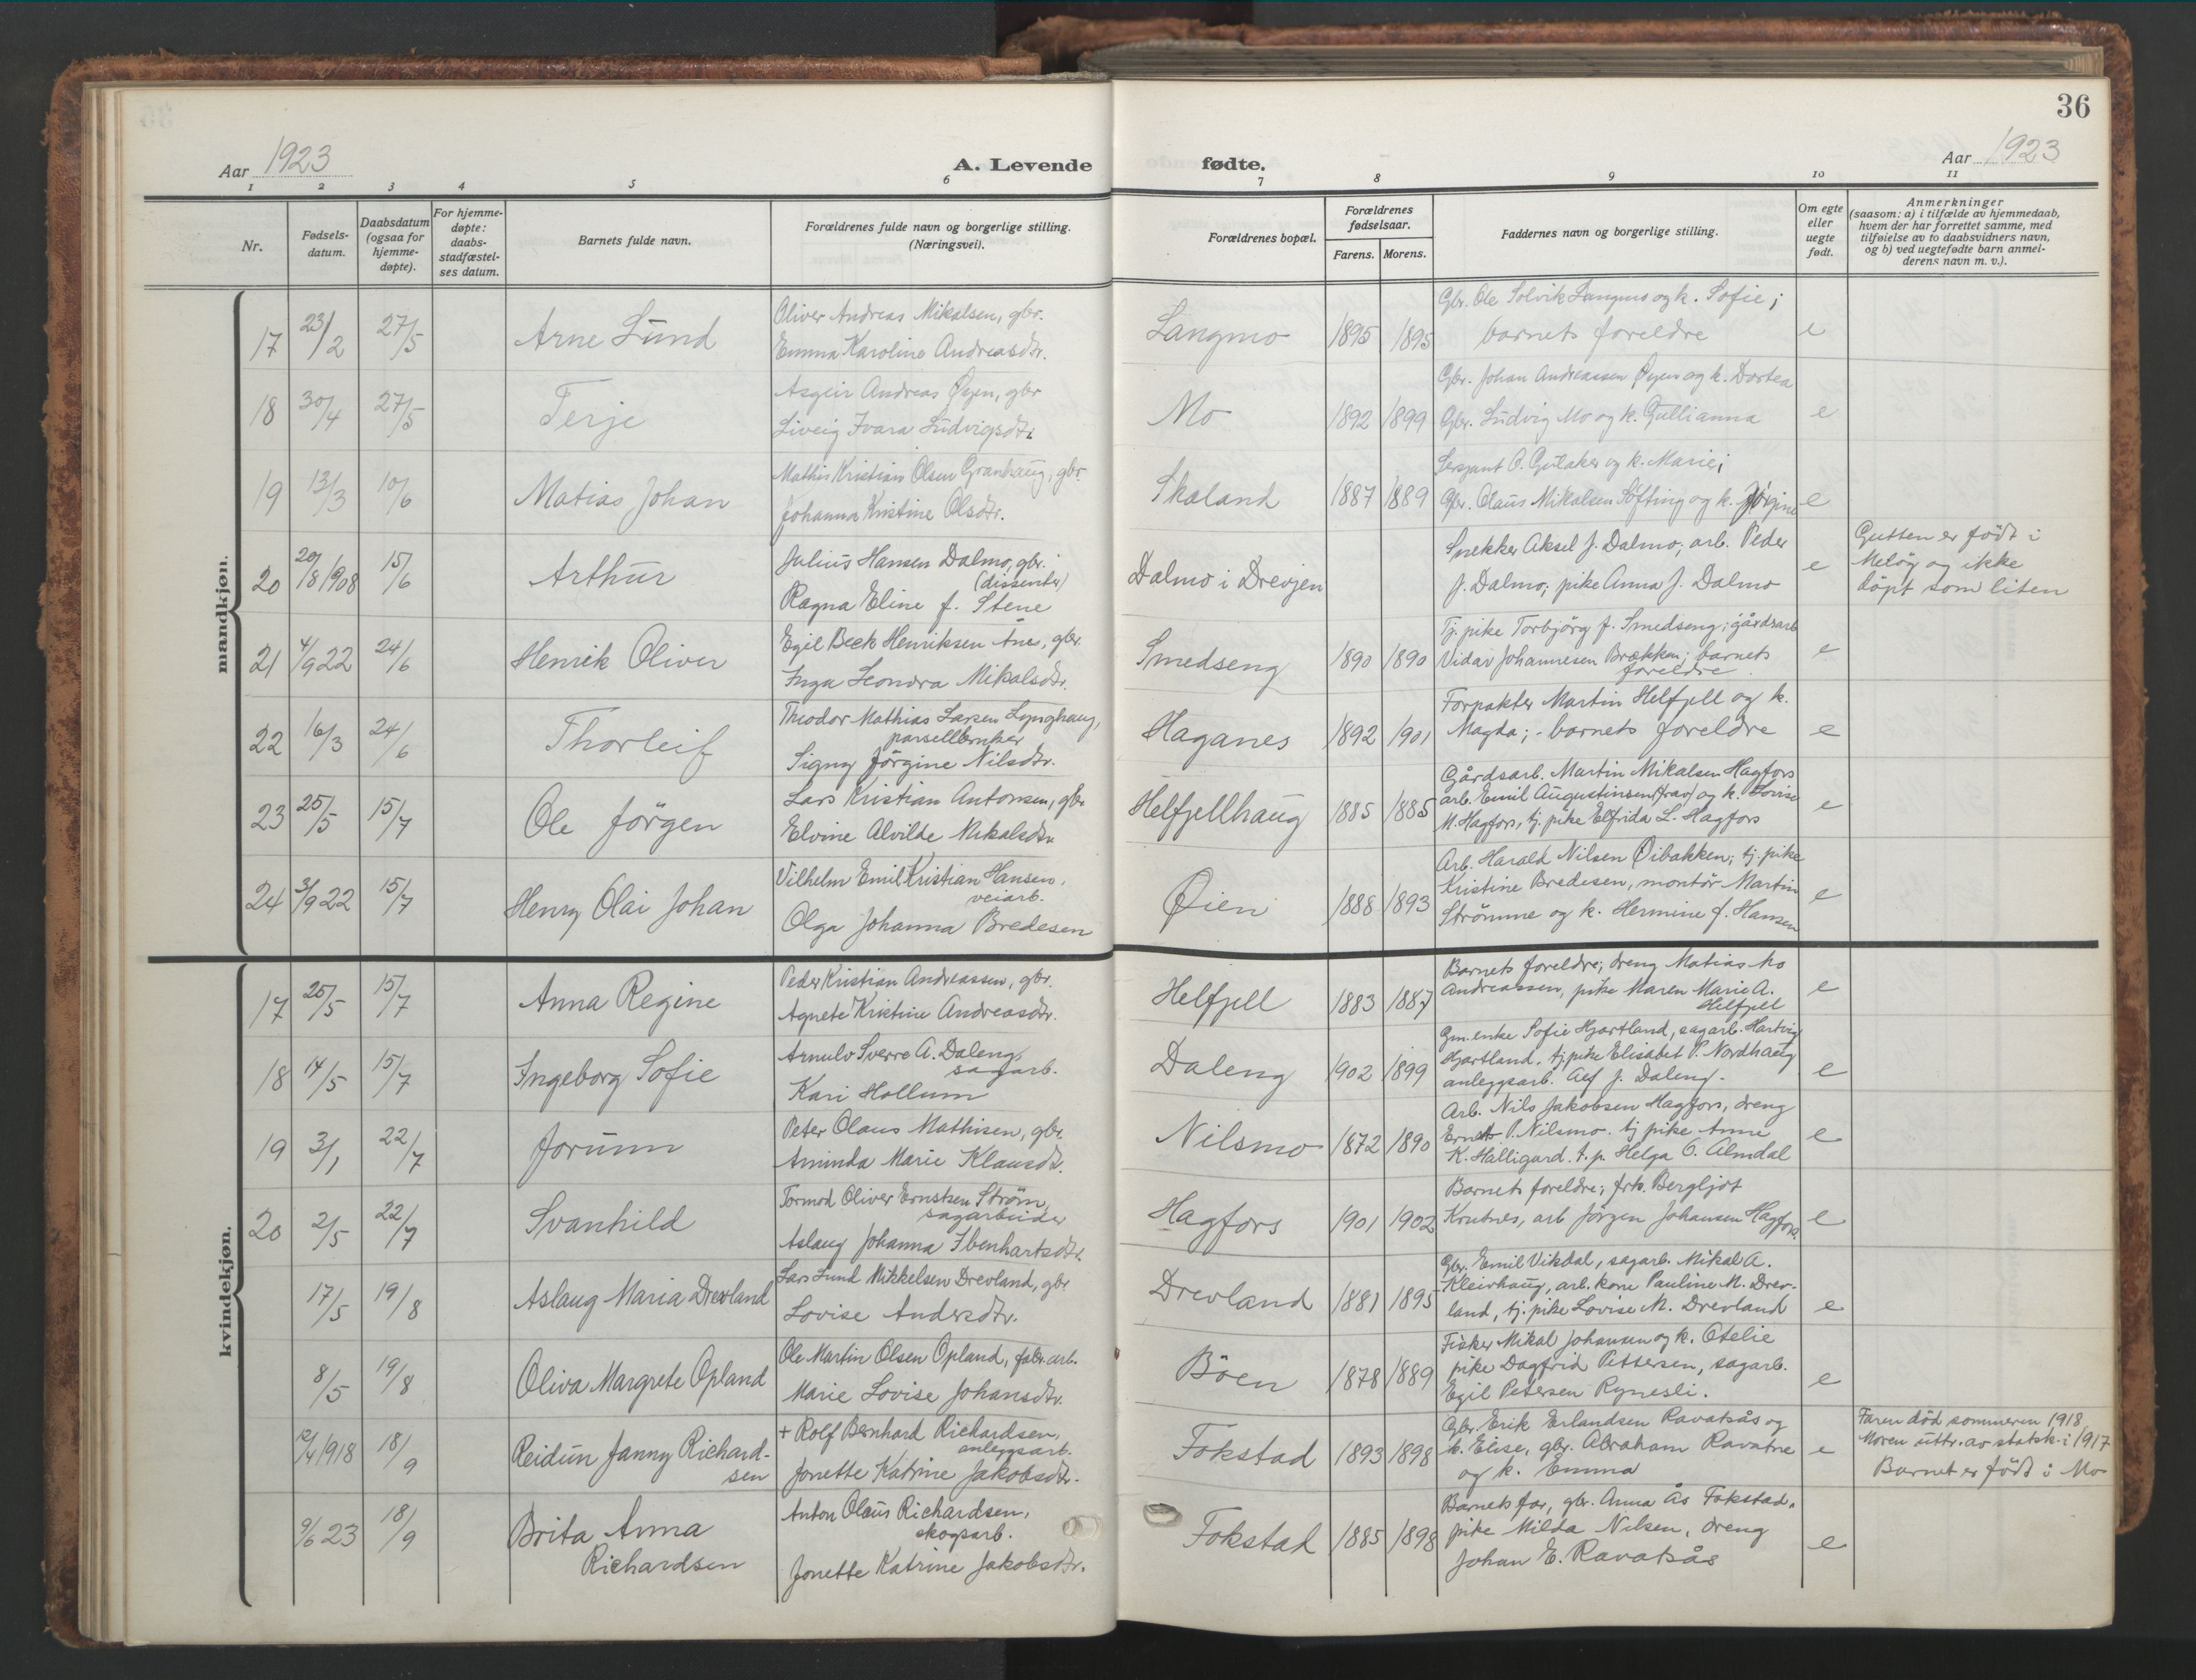 36
Aar 1923
A. Levende
fødte.
Aar 1923
1 2 3 4 5 6 7 8 9 10 11
Nr.
Fødsels-
datum.
Daabsdatum
(ogsaa for
hjemme-
døpte).
For hjemme-
døpte:
daabs-
stadfæstel-
ses datum.
Barnets fulde navn.
Forældrenes fulde navn og borgerlige stilling.
(Næringsvei).
Forældrenes bopæl.
Forældrenes
fødselsaar.
Farens. Morens.
Faddernes navn og borgerlige stilling.
Om egte
eller
uegte
født.
Anmerkninger
(saasom: a) i tilfælde av hjemmedaab,
hvem der har forrettet samme, med
tilføielse av to daabsvidners navn,
og b) ved uegtefødte barn anmel-
derens navn m. v.).
mandkjøn.
17 23/2 27/5 Arne Lund
Oliver Andreas Mikalsen, gbr.
Emma Karoline Andreasdtr.
Langmo 1895 1895
Gbr. Ole Solvik Langmo og k. Sofie;
barnets foreldre
e
18 30/4 27/5 Terje
Asgeir Andreas Øyen, gbr
Liveig Ivara Ludvigsdtr.
Mo 1892 1899
Gbr. Johan Andreassen Øyen og k. Dortea
Gbr. Ludvig Mo og k. Gullianna
e
19 13/3 10/6 Matias Johan
Mathis Kristian Olsen Granhaug, gbr.
Johanna Kristine Olsdtr.
Skaland 1887 1889
Sersjant O. Gulaker og k. Marie;
Gbr. Olaus Mikalsen Søfting og k. Jørgine
e
20 20/8 1908 15/6 Arthur
Julius Hansen Dalmo, gbr.
(dissenter)
Ragna Eline f. Stene
Dalmo i Drevjen
Snekker Aksel J. Dalmo; arb. Peder
J. Dalmo; pike Anna J. Dalmo
e
Gutten er født i
Meløy og ikke
døpt som liten
21 4/9 22 24/6 Henrik Oliver
Egil Beck Henriksen Åne, gbr.
Inga Leonora Mikalsdtr.
Smedseng 1890 1890
Tj. pike Torbjørg f. Smedseng; gårdsarb
Vidar Johannesen Brækken; barnets
foreldre
e
22 16/3 24/6 Thorleif
Theodor Mathias Larsen Lynghaug,
parsellbruker
Signy Jørgine Nilsdtr.
Haganes 1892 1901
Forpakter Martin Helfjell og k.
Magda; - barnets foreldre
e
23 25/5 15/7 Ole Jörgen
Lars Kristian Antonsen, gbr
Elvine Alvilde Mikalsdtr
Helfjellhaug 1885 1885
Gårdsarb. Martin Mikalsen Hagfors
arb. Emil Augustinsen (frav) og k. Lovise
M. Hagfors, tj. pike Elfrida L. Hagfors
e
24 3/9 22 15/7 Henry Olai Johan
Vilhelm Emil Kristian Hansen,
veiarb.
Olga Johanna Bredesen
Øien 1888 1893
Arb. Harald Nilsen Øibakken; tj. pike
Kristine Bredesen, montör Martin
Strömme og k. Hermine f. Hansen
e
kvindekjøn.
17 25/5 15/7 Anna Regine
Peder Kristian Andreassen, gbr.
Agnete Kristine Andreasdtr.
Helfjell 1883 1887
Barnets foreldre; dreng Matias Mo
Andreassen, pike Maren Marie A.
Helfjell
e
18 14/5 15/7 Ingeborg Sofie
Arnulv Sverre A. Daleng,
sagarb.
Kari Hollum
Daleng 1902 1899
Gm. enke Sofie Hjartland, sagarb. Hartvig
Hjartland, tj. pike Elisabet P. Nordhaug
anleggsarb. Alf J. Daleng.
e
19 3/1 22/7 Jorunn
Peter Olaus Mathisen, gbr.
Aminda Marie Klausdtr.
Nilsmo 1872 1890
Arb. Nils Jakobsen Hagfors, dreng
Ernst P. Nilsmo. tj pike Anne
K. Halligard. t. p. Helga O. Almdal
e
20 2/5 22/7 Svanhild
Tormod Oliver Ernstsen Ström,
sagarbeider
Aslaug Johanna Ibenhartsdtr.
Hagfors 1901 1902
Barnets foreldre; frk. Bergljot
Krutnes, arb Jörgen Johansen Hagfors.
e
17/5 19/8 Aslaug Maria Drevland
Lars Lund Mikkelsen Drevland, gbr
Lovise Andersdtr.
Drevland 1881 1895
Gbr. Emil Vikdal, sagarb. Mikal A.
Kleivhaug, arb. kone Pauline M. Drev-
land, tj. pike Lovise M. Drevland
e
8/5 19/8 Oliva Margrete Opland
Ole Martin Olsen Opland, fabr. arb.
Marie Lovise Johansdtr.
Böen 1878 1889
Fisker Mikal Johansen og k. Otelie
pike Dagfrid Pettersen, sagarb.
Egil Petersen Rynesli.
e
12/4 1918 18/9 Reidun Janny Richard-
sen
+ Rolf Bernhard Richardsen,
anleggsarb.
Jonette Katrine Jakobsdtr.
Fokstad 1893 1898
Gbr. Erik Erlandsen Ravatsås og
k. Elise, gbr. Abraham Ravatne
og k. Emma
e
Faren död sommeren 1918
Moren uttr. av statsk. i 1917
Barnet er född i Mo
9/6 23 18/9 Brita Anna
Richardsen
Anton Olaus Richardsen,
skogsarb.
Jonette Katrine Jakobsdtr.
Fokstad 1885 1898
Barnets far, gbr. Anna Ås Fokstad,
pike Milda Nilsen, dreng
Johan E. Ravatsås
e